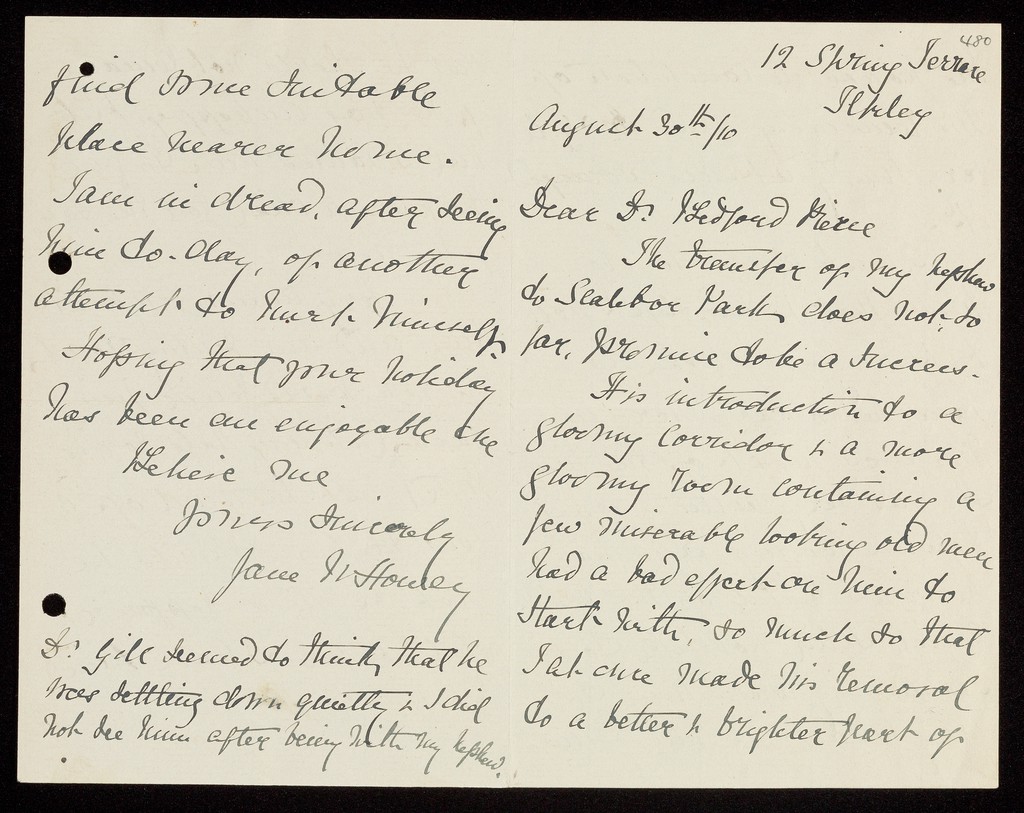 480
12 Spring Terrace
Ilkley
August 30th/10
Dear Dr Bedford Pierce
The transfer of my nephew
to Scalebor Park does not, so
far, promise to be a success.
His introduction to a
gloomy corridor & a more
gloomy room containing a
few miserable looking old men
had a bad effect on him to
start with, so much so that
I at once made his removal
to a better & brighter part of
find some suitable
place nearer home.
I am in dread, after seeing
him to-day, of another
attempt to hurt himself.
Hoping that your holiday
has been an enjoyable one
Believe me
Yours sincerely
Jane
Dr Gill seemed to think, that he
was settling down quietly & I did
not see him after being with my nephew.